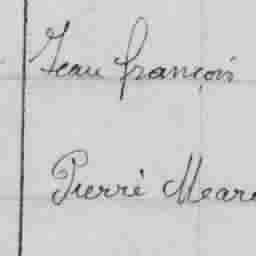 Jean françois
Pierre Mar